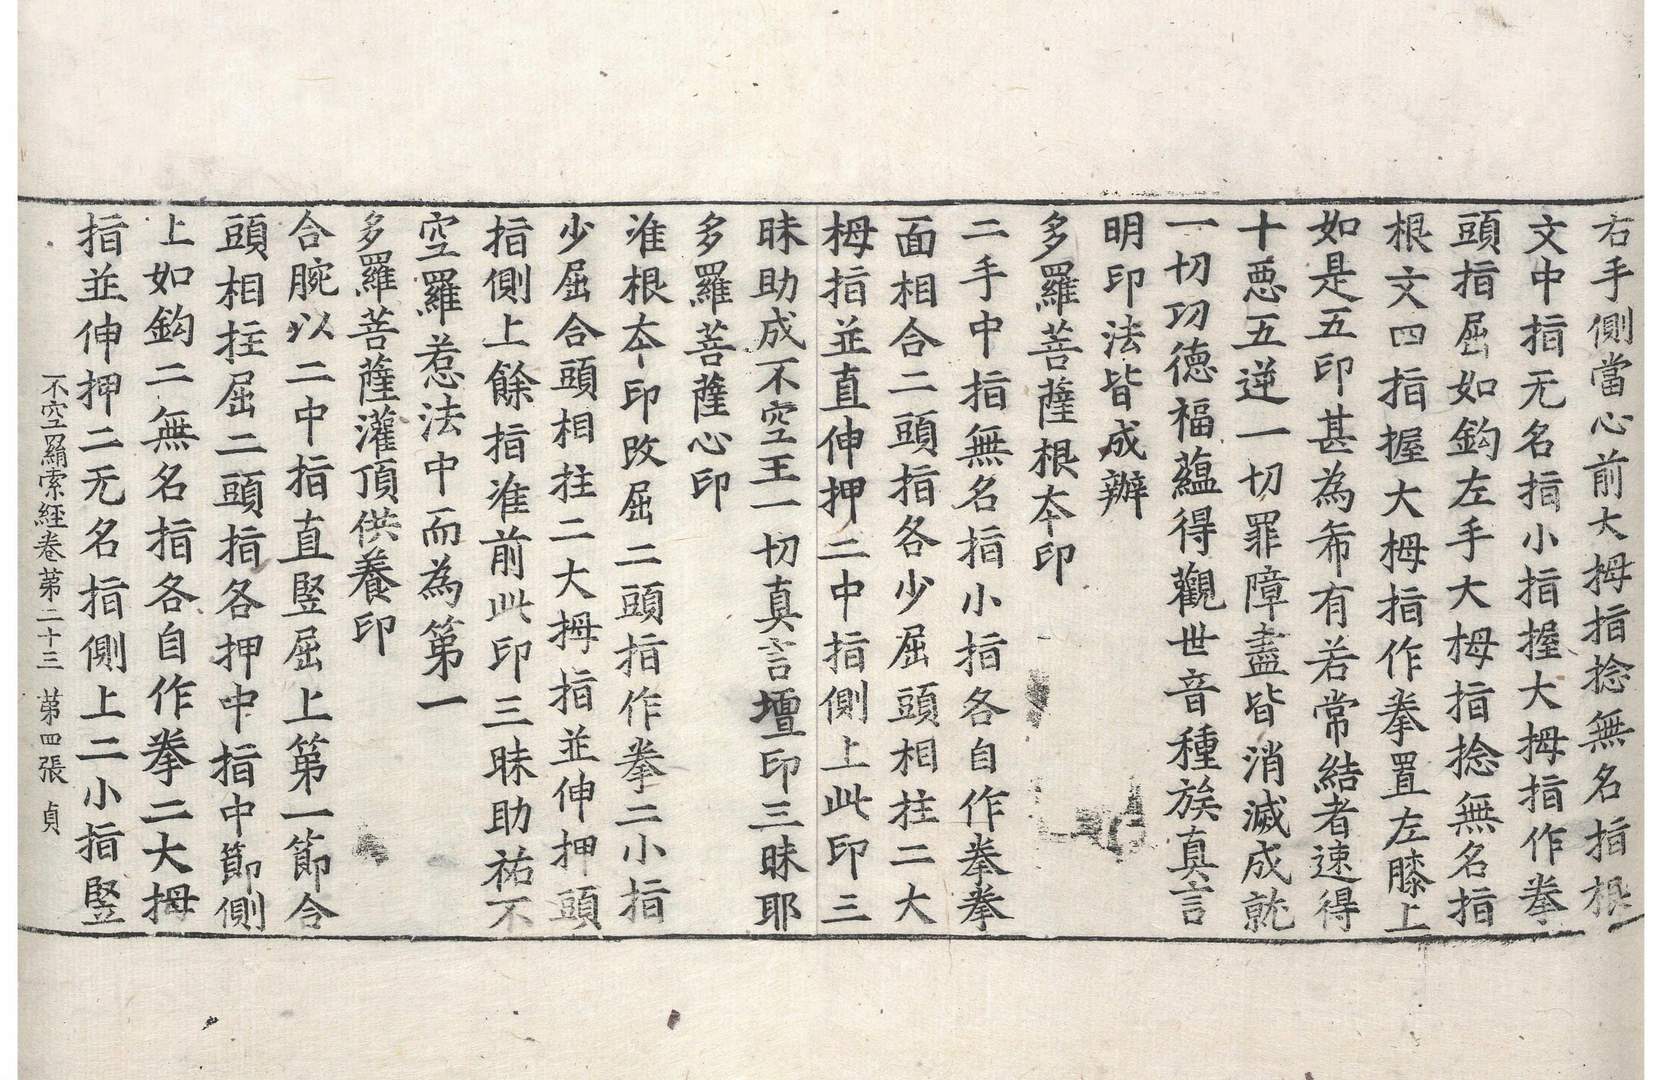 右手側當心前大拇指捻無名指根
文中指无名指小指握大拇指作拳
頭指屈如鈎左手大拇指捻無名指
根文四指握大拇指作拳置左膝上
如是五印甚為希有若常結者速得
十惡五逆一切罪障盡皆消滅成就
一切功德福蘊得觀世音種族真言
明印法皆成辦
多羅菩薩根本印
二手中指無名指小指各自作拳拳
面相合二頭指各少屈頭相拄二大
拇指並直伸押二中指側上此印三
昧助成不空王一切真言壇印三昧耶
多羅菩薩心印
准根本印改屈二頭指作拳二小指
少屈合頭相拄二大拇指並伸押頭
指側上餘指准前此印三昧助祐不
空羅惹法中而為第一
多羅菩薩灌頂供養印
合腕以二中指直豎屈上第一節令
頭相拄屈二頭指各押中指中節側
上如鈎二無名指各自作拳二大拇
指並伸押二无名指側上二小指豎
不空羂索經卷第二十三 第四張 貞